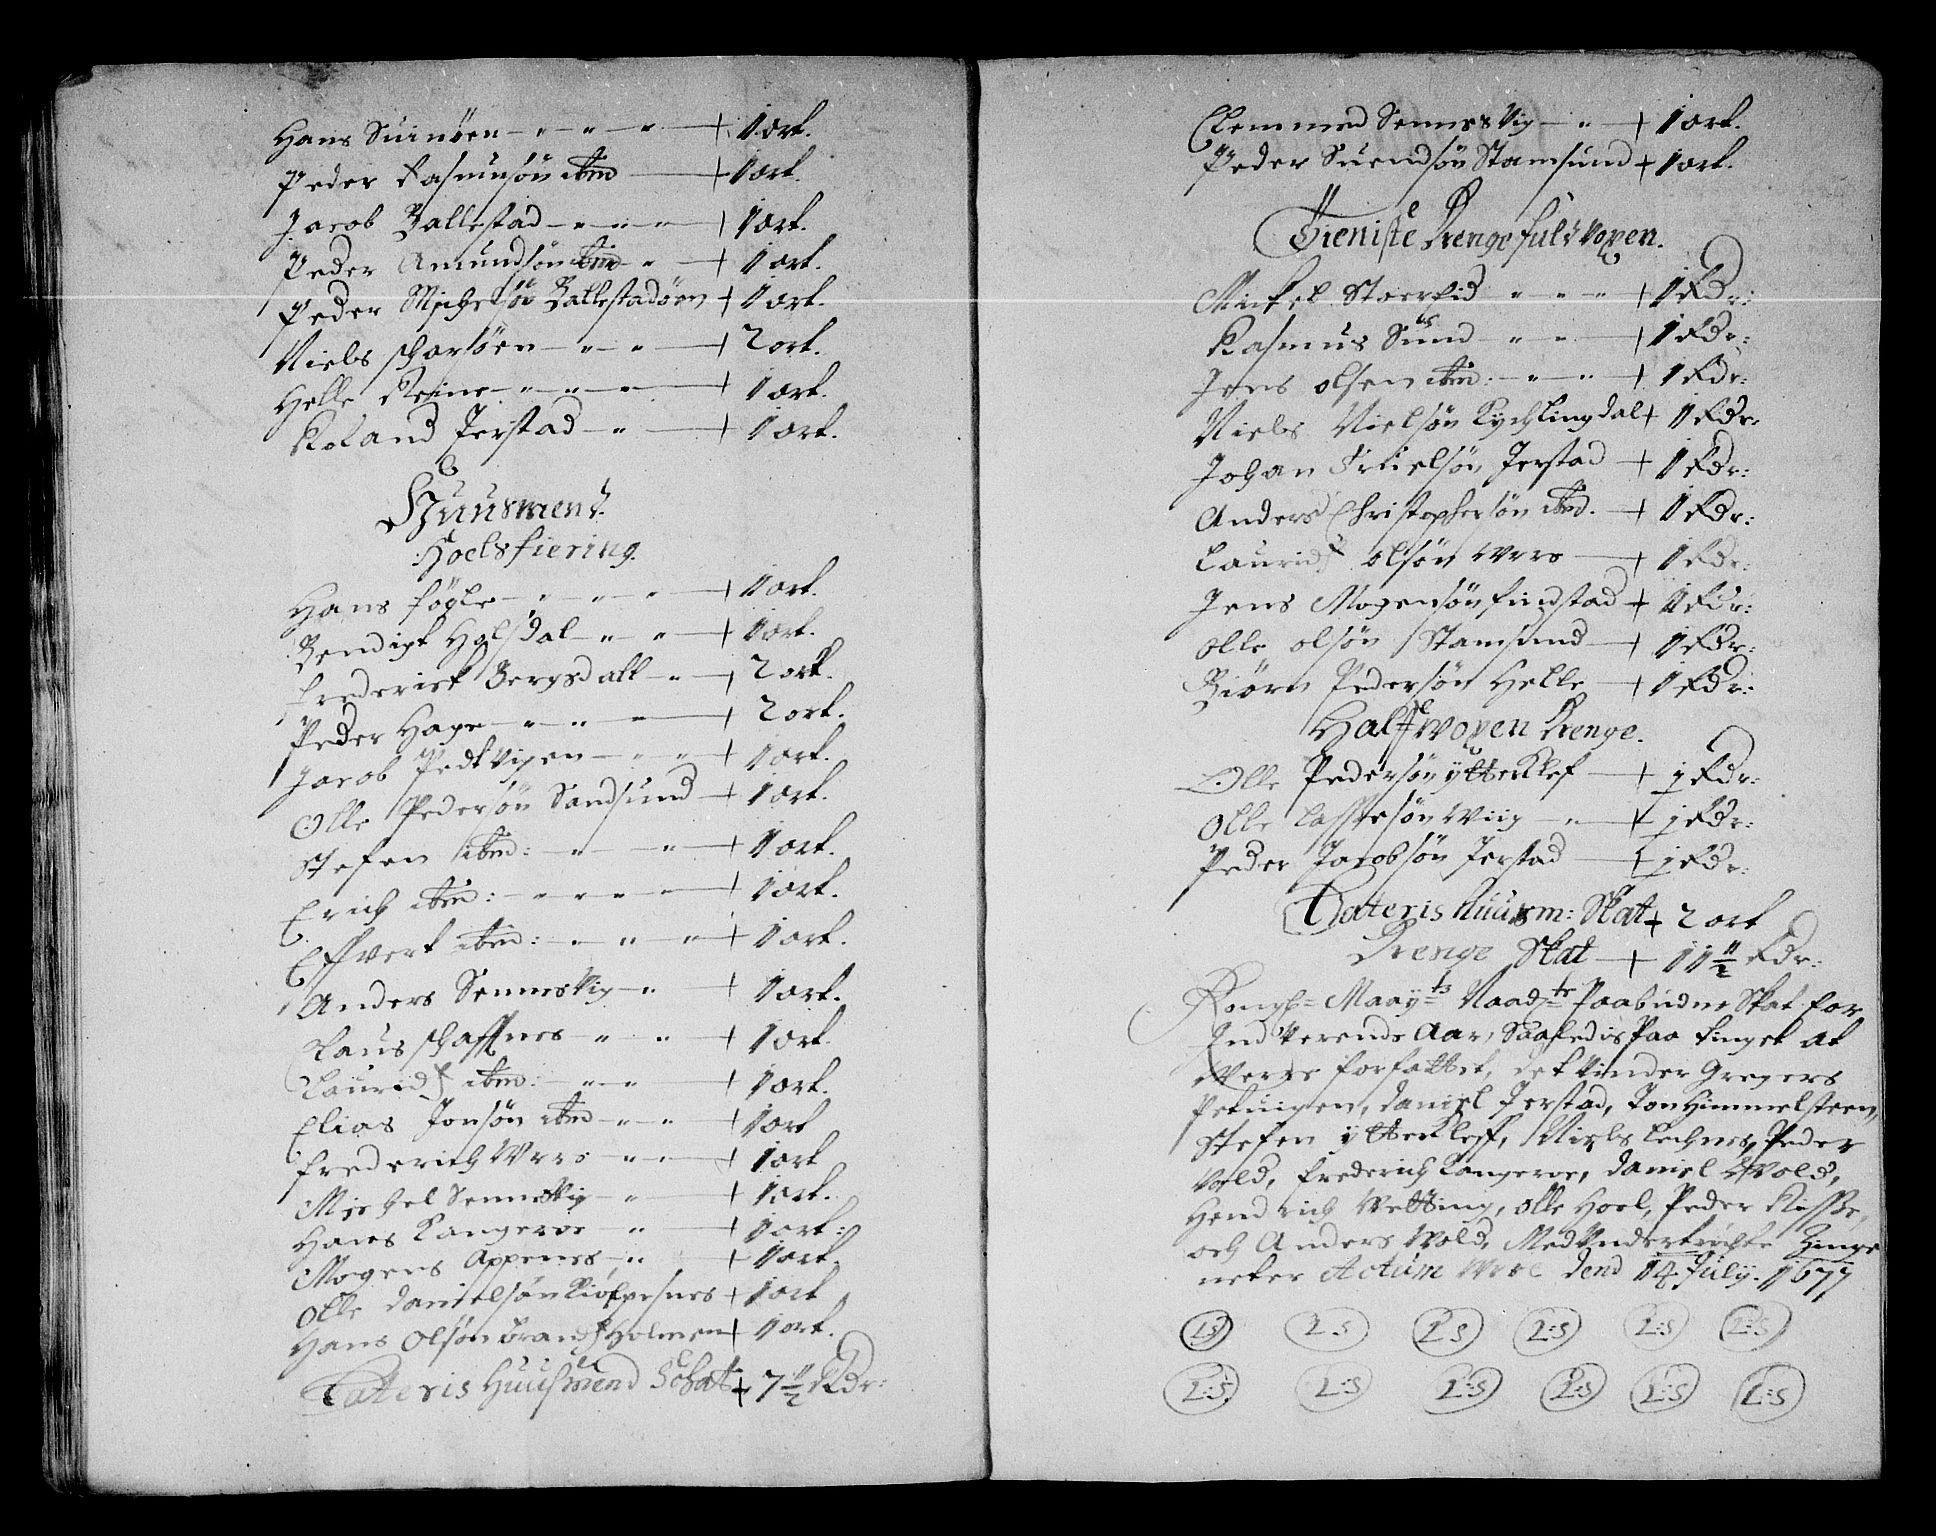 Hans Suinöen — " " " — + 1 ort.
Peder Rasmusøn ibm — + 1 ort.
Jacob Ballestad — " " " — + 1 ort.
Peder Amundsøn ibm — " — + 1 ort.
Peder Michelsøn Ballestadöen + 1 ort.
Niels scharföen — " " — + 2 ort.
Helle Reine — " " " — + 1 ort.
Roland Jerstad — " — + 1 ort.
Huusmend.
Hoelsfiering.
Hans fögle — " " " — + 1 ort.
Bendigt Holsdal — " " — + 1 ort.
frederick Bergsdall — " — + 2 ort.
Peder Hage — " " " — + 2 ort.
Jacob Petvigen — " " — + 1 ort.
Olle Pedersøn Sandsund — + 1 ort.
Stefen ibm: — " " — + 1 ort.
Erich ibm: — " " " — + 1 ort.
Effvert ibm: — " " " — + 1 ort.
Anders Sennesvig — " — + 1 ort.
Laus schaffnes " " — + 1 ort.
Lauridz ibm: — " " — + 1 ort.
Elias Jonsøn ibm — " " — + 1 ort
frederich Wrre " " — + 1 ort
Michel Sennesvig — " — + 1 ort.
Hans Langeroe " — + 1 ort:
Mogens Appenes — " — + 1 ort.
Olle danielsøn Kiölpesnes + 1 ort
Hans Olsøn brandzholmen + 1 ort.
Lateris Huusmend Schat + 7 ½ Rdr:
Clemmed Sennesvig — " — + 1 ort.
Peder Suendsøn Stamsund + 1 ort.
Tieniste Drenge fuldvoxen.
Mickel Stoerfid " " " + 1 Rdr:
Rasmus Sund " " — + 1 Rdr:
Jens olsen ibm: — " " — + 1 Rdr:
Niels Nielsøn Kychlingdal + 1 Rdr.
Johan Trielsøn Jerstad — + 1 Rdr:
Anders Christophersøn ibm. — + 1 Rdr:
Lauridz olsøn Wrre — + 1 Rdr:
Jens Mogensøn findstad + 1 Rdr:
olle olsøn Stamsund — + 1 Rdr:
Biörn Pedersøn Helle — + 1 Rdr:
Halfvoxen Drenge.
Olle Pedersøn ytterklef — + ½ Rdr:
Olle Lassesøn Wiig — " — + ½ Rdr:
Peder Jacobsøn Jerstad — + ½ Rdr:
Lateris huusm: Skat + 2 ort
Drenge Skat — + 11 ½ Rdr:
Kongl= Maay=ts Naad=te Paabudne Skat for
Indverende Aar, Saaledis Paa Tinget at
Were forfattet, det vinder Gregers
Petuigen, daniel Jerstad, Ton Himmelsteen,
Stefen ytterkleff, Niels Lechnes, Peder
Vold, frederich Langeroe, daniel Wold,
Hendrich Vetting, olle Hoel, Peder Risse,
och Anders Vold, Med Undertrychte Zing-
neter Actum Wrre dend 14 July. 1677
L S L S L S L:S L:S L:S
L:S L:S L:S L:S L:S L:S